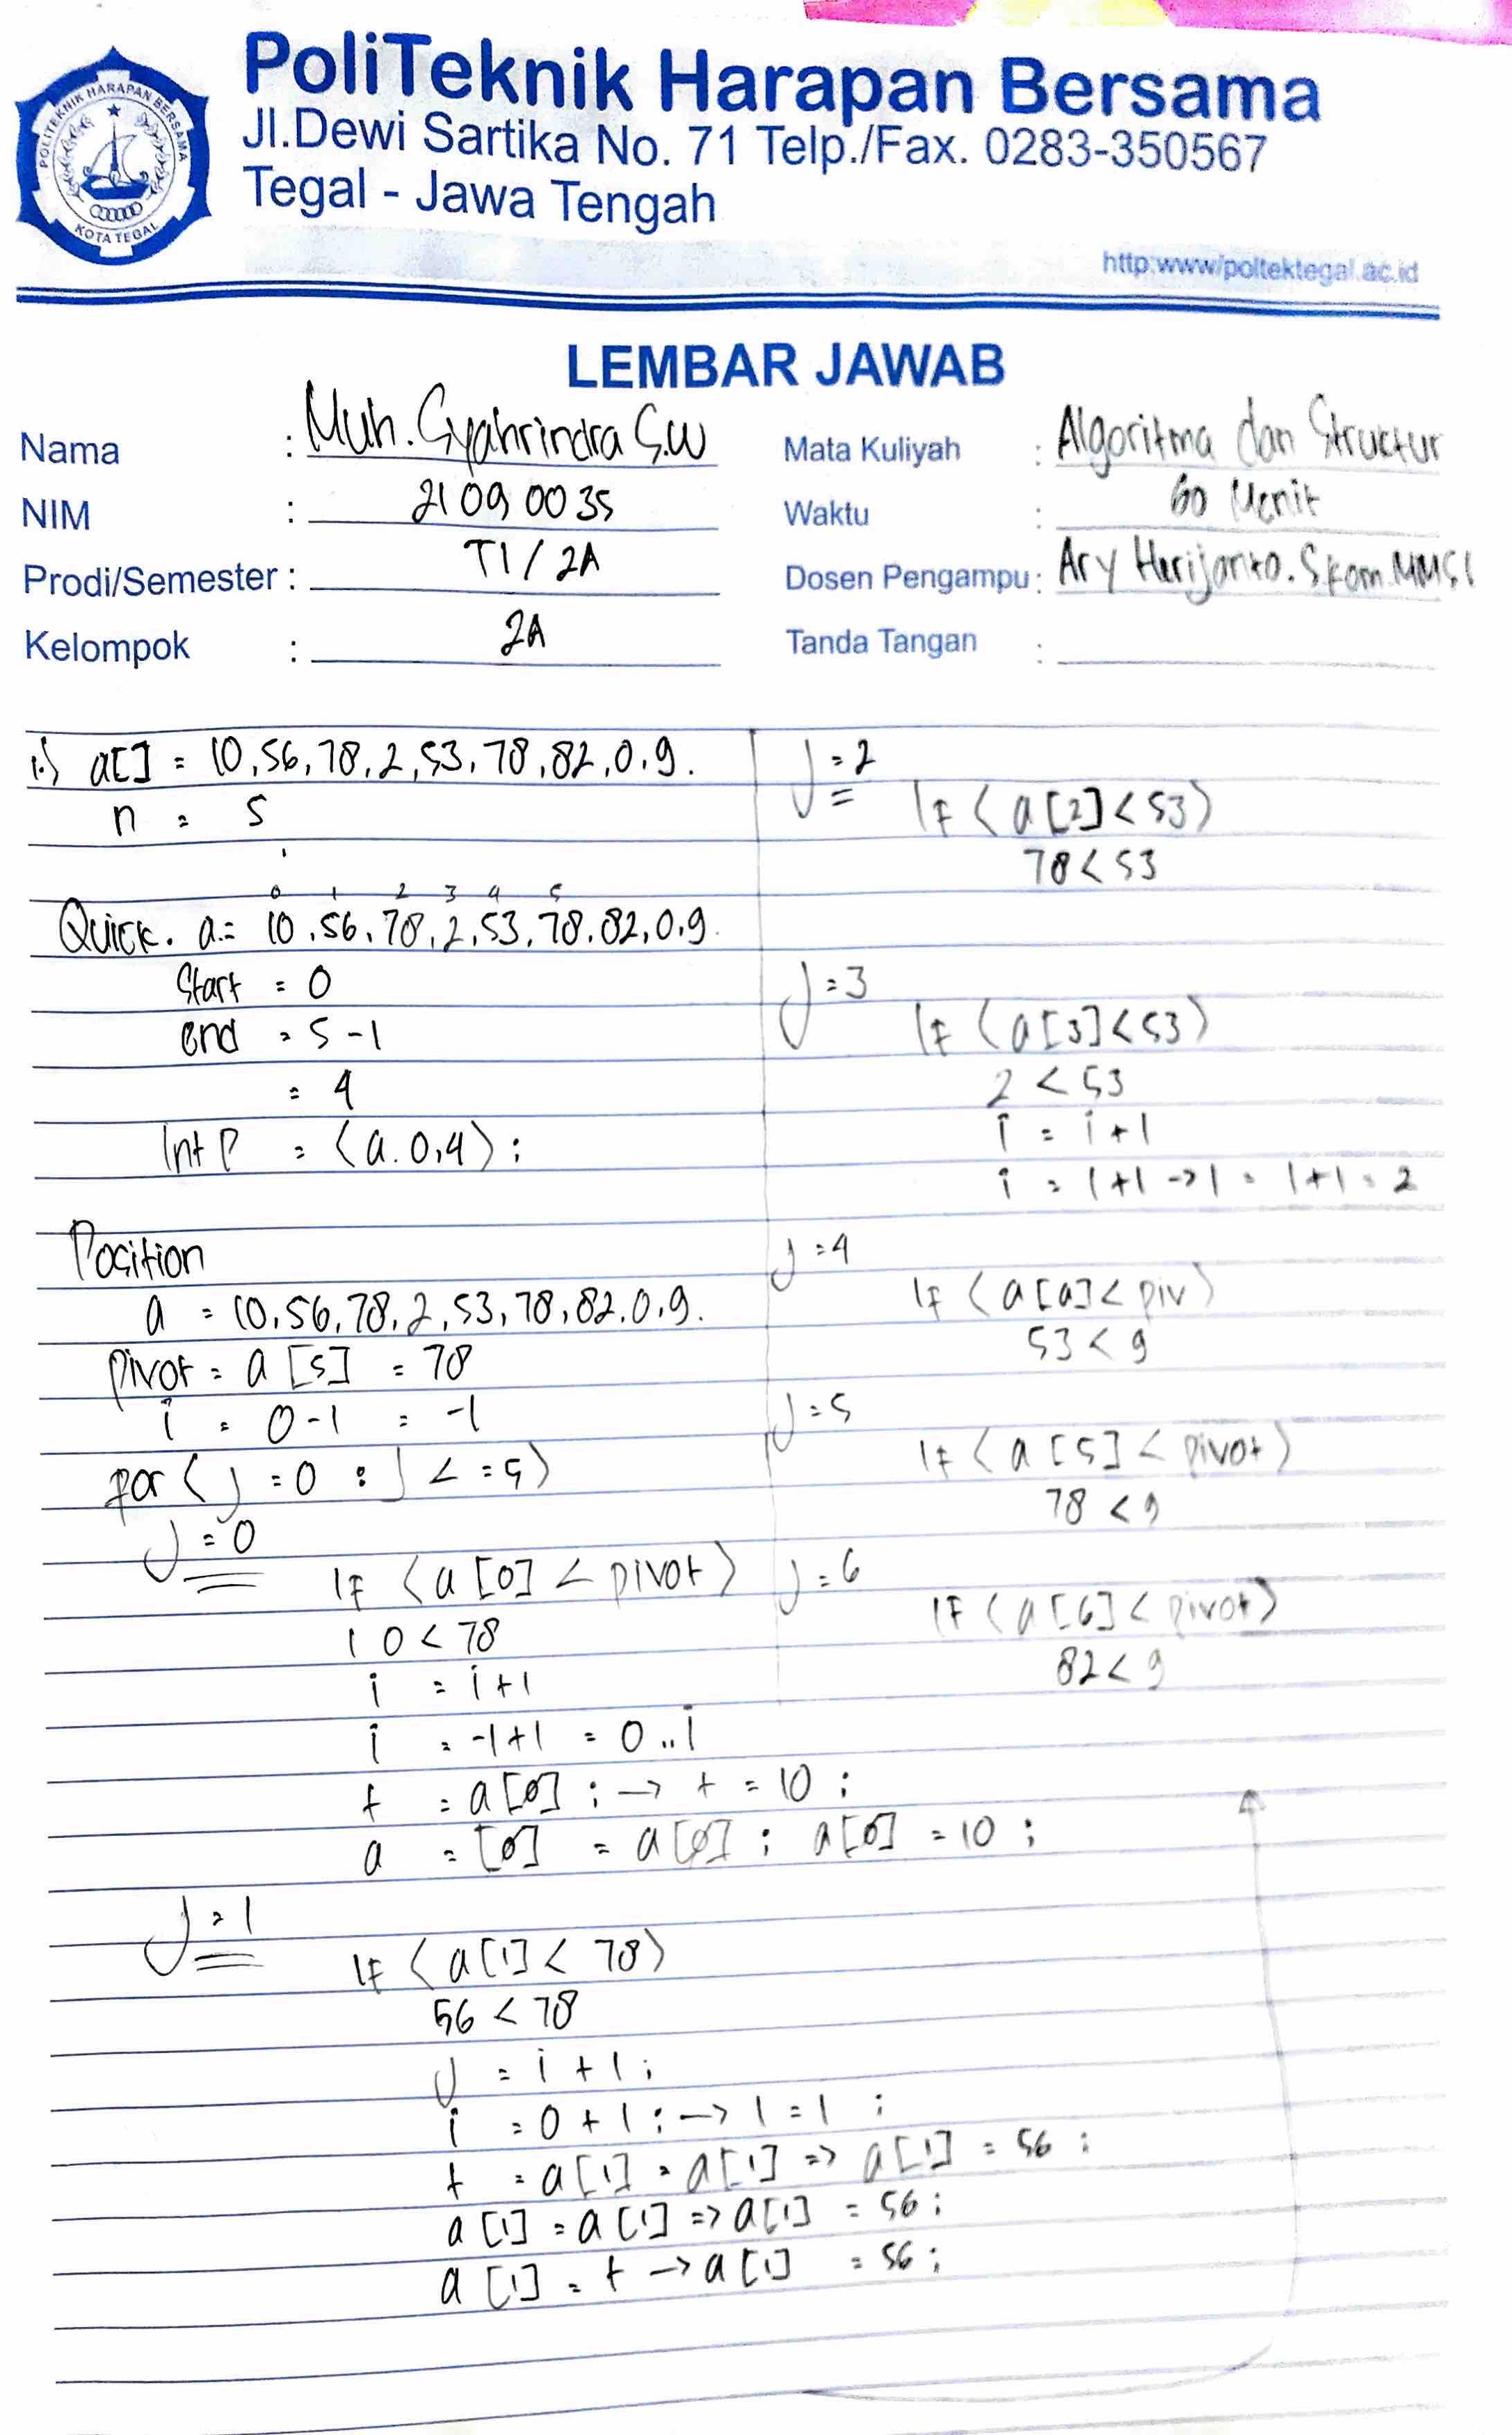 POLITEKNIK HARAPAN BERSAMA
KOTA TEGAL
PoliTeknik Harapan Bersama
Jl.Dewi Sartika No. 71 Telp./Fax. 0283-350567
Tegal - Jawa Tengah
http:www/poltektegal.ac.id
LEMBAR JAWAB
Nama : Muh. Syahrindra S.W
NIM : 21090035
Prodi/Semester : TI / 2A
Kelompok : 2A
Mata Kuliyah : Algoritma dan Struktur
Waktu : 60 Menit
Dosen Pengampu : Ary Herijanto. S.kom. MMSI
Tanda Tangan :
1.) a[] = 10, 56, 78, 2, 53, 78, 82, 0, 9.
n = 5
0 1 2 3 4 5
Quick. a = 10, 56, 78, 2, 53, 78, 82, 0, 9.
Start = 0
end = 5 - 1
= 4
Int P = (a. 0, 4) ;
Position
a = 10, 56, 78, 2, 53, 78, 82, 0, 9.
Pivot = a [5] = 78
i = 0 - 1 = -1
for ( j = 0 ; j < = 5)
j = 0
If (a [0] < pivot)
10 < 78
i = i + 1
i = -1 + 1 = 0 .. i
t = a [0] ; → t = 10 ;
a = [0] = a [0] ; a [0] = 10 ;
j = 1
If (a [1] < 78)
56 < 78
j = i + 1 ;
i = 0 + 1 ; → 1 = 1 ;
t = a [1] = a [1] => a [1] = 56 ;
a [1] = a [1] => a [1] = 56 ;
a [1] = t → a [1] = 56 ;
j = 2
If (a [2] < 53)
78 < 53
j = 3
If (a [3] < 53)
2 < 53
i = i + 1
i = 1 + 1 → 1 = 1 + 1 = 2
j = 4
If (a [4] < piv)
53 < 9
j = 5
If (a [5] < pivot)
78 < 9
j = 6
If (a [6] < pivot)
82 < 9